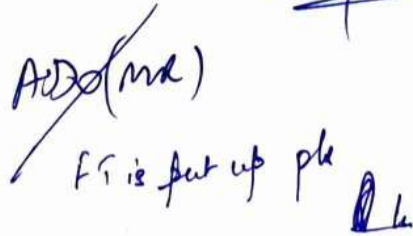 ADO(MR)
FT is put up pk